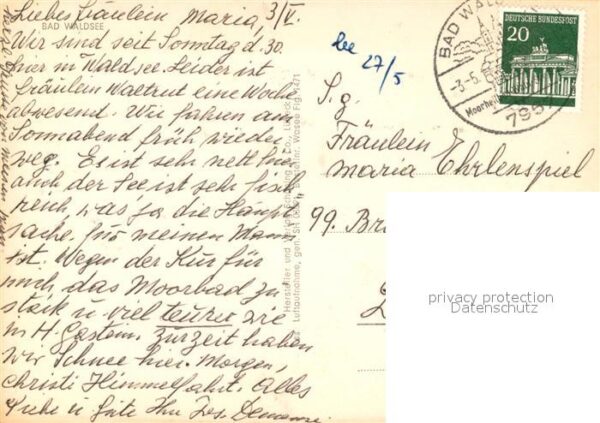 Liebes Fräulein Maria, 3/V.
BAD WALDSEE
Wir sind seit Sonntag d. 30.
hier in Waldsee. Leider ist
Fräulein Waltrut eine Woche
abwesend. Wir fahren am
Sonnabend früh wieder
weg. Es ist sehr nett hier
auch der See ist sehr fisch
reich, was ja die Haupt
sache für meinen Mann
ist. Wegen der Kur für
mich das Moorbad zu
stark u viel teurer wie
in H. Gastein. Zurzeit haben
wir Schnee hier. Morgen,
Christi Himmelfahrt. Alles
Liebe u Gute Ihr Jos.
27/5
S. g.
Fräulein
Maria Ehrlenspiel
99. Br
BAD WALD
3-5
Moorhei
795
DEUTSCHE BUNDESPOST
20
Hersteller und Verlag
Luftaufnahme, gen.
privacy protection
Datenschutz